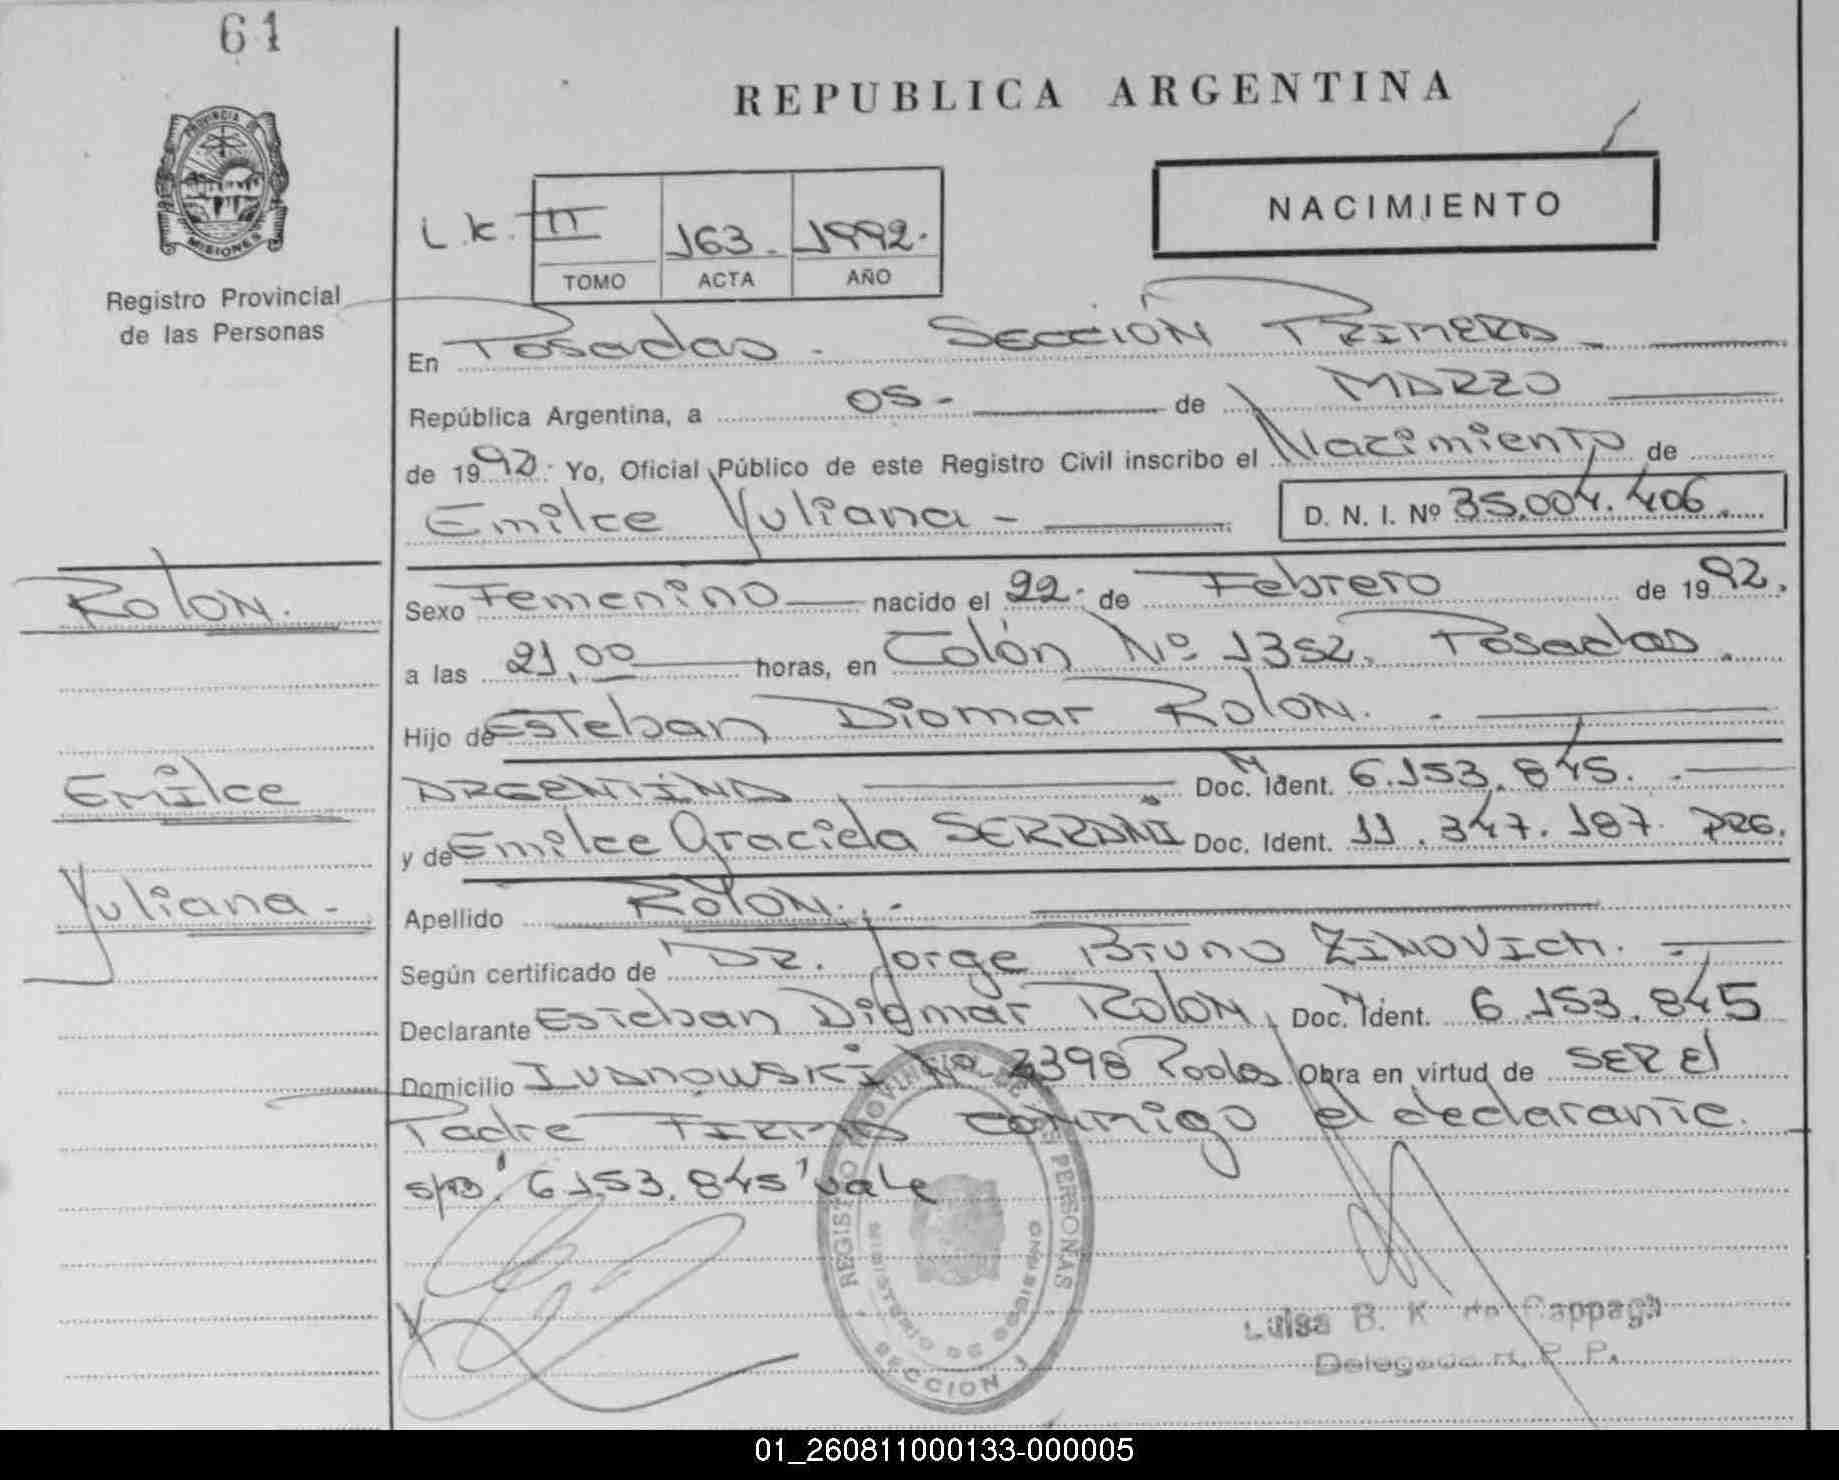 61
REPUBLICA ARGENTINA
PROVINCIA DE
MISIONES
Registro Provincial
de las Personas
L.K. II 163. 1992.
TOMO ACTA AÑO
NACIMIENTO
En Posadas - SECCIÓN PRIMERA
República Argentina, a 05 - de MARZO
de 1992. Yo, Oficial Público de este Registro Civil inscribo el Nacimiento de
Emilce Yuliana - D. N. I. Nº 35.004.406.
Rolon.
Sexo Femenino nacido el 22. de Febrero de 1992.
a las 21,00 horas, en Colón Nº 1352. Posadas.
Hijo de Esteban Diomar Rolon. -
Emilce
ARGENTINA Doc. M Ident. 6.153.845. -
y de Emilce Graciela SERRANI Doc. Ident. 11.347.187. ARG.
Yuliana -
Apellido Rolon. -
Según certificado de DR. Jorge Bruno ZINOVICH. -
Declarante Esteban Diomar Rolon, Doc. M Ident. 6.153.845
Domicilio IVANOWSKI Nº 2398 Pdas Obra en virtud de SER El
Padre FIRMA conmigo el declarante.
s/r: "6.153.845" vale
REGISTRO PROVINCIAL DE LAS PERSONAS
MINISTERIO DE GOBIERNO
SECCION 1
Luisa B. K. de Cappagh
Delegada R. P. P.
01_260811000133-000005